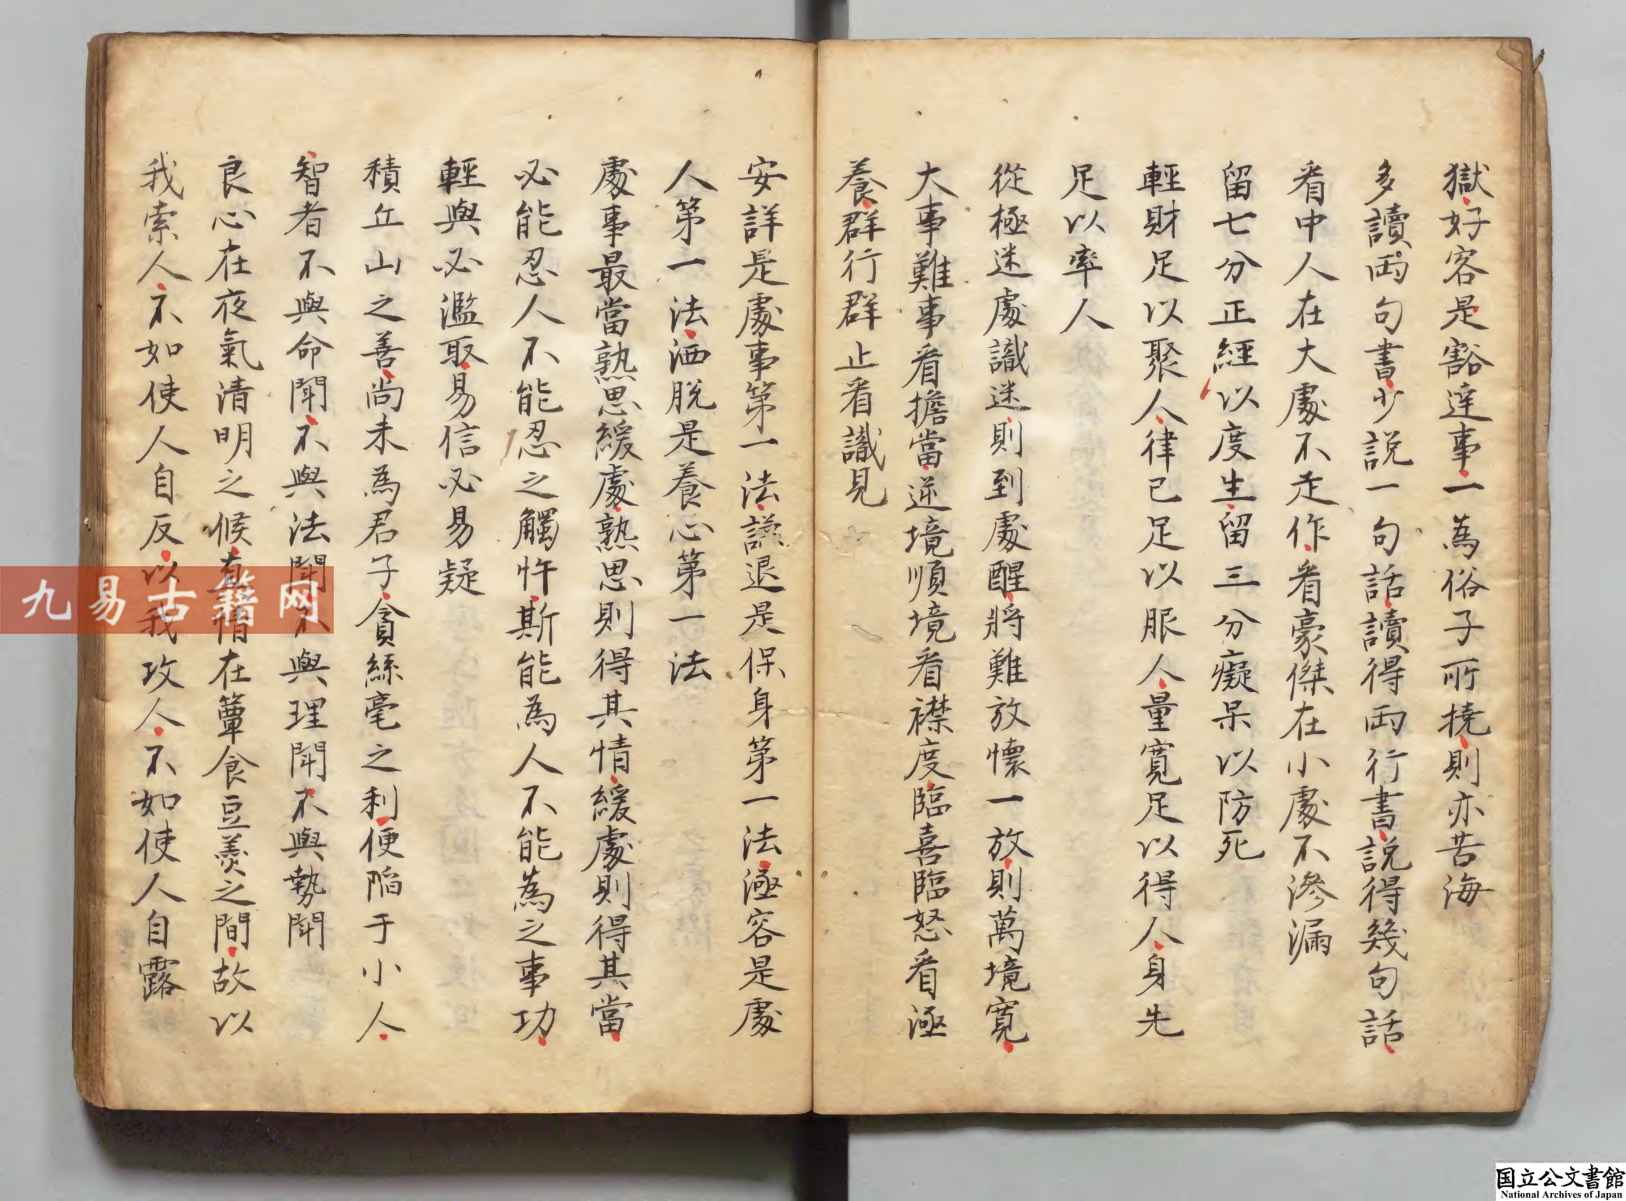 獄好客是豁達事一為俗子所撓則亦苦海
多讀兩句書少説一句話讀得兩行書説得幾句話
看中人在大處不走作看豪傑在小處不滲漏
留七分正經以度生留三分癡呆以防死
輕財足以聚人律己足以服人量寬足以得人身先
足以率人
從極迷處識迷則到處醒將難放懷一放則萬境寬
大事難事看擔當逆境順境看襟度臨喜臨怒看涵
養群行群止看識見
安詳是處事第一法謙退是保身第一法涵容是處
人第一法洒脱是養心第一法
處事最當熟思緩處熟思則得其情緩處則得其當
必能忍人不能忍之觸忤斯能為人不能為之事功
輕與必濫取易信必易疑
積丘山之善尚未為君子貪絲毫之利便陷于小人
智者不與命鬪不與法鬪不與理鬪不與勢鬪
良心在夜氣清明之候真情在簞食豆羹之間故以
我索人不如使人自反以我攻人不如使人自露
九易古籍网
国立公文書館
National Archives of Japan